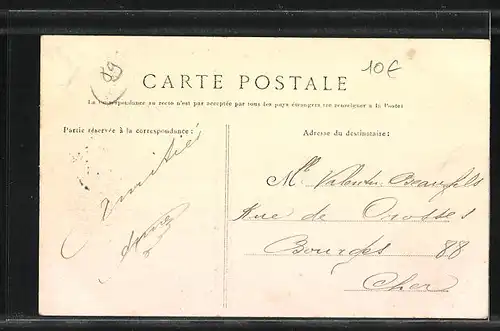 89
10€
CARTE POSTALE
La Correspondance au recto n'est pas acceptée par tous les pays étrangers (se renseigner à la Poste)
Partie réservée à la correspondance:
Adresse du destinataire:
Amitiés
Mlle Valentin
Rue de
Bourges 88
Cher